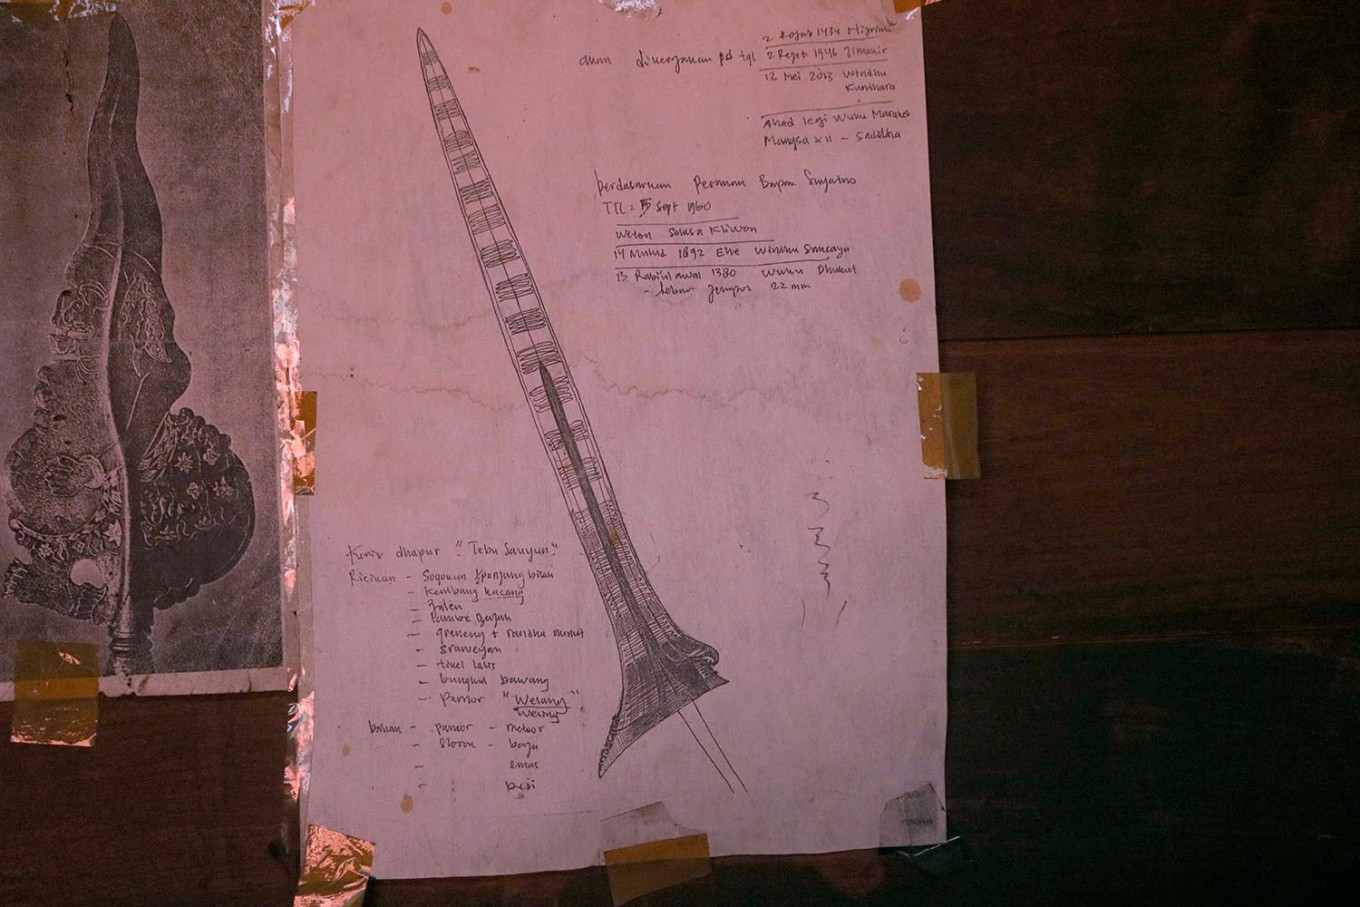 akan dikerjakan pd tgl
2 Rojab 1434 Hijriah
2 Rejeb 1946 Jimakir
12 Mei 2013 Windhu
Kunthara
Ahad legi Wuku
Mangsa XII - Sadddha
berdasarkan Pesanan Bapak Suyatno
TTL = 5 Sept 1960
Weton Selasa Kliwon
14 Mulud 1892 Ehe Windhu Sancaya
13 Rabi'ul awal 1380 Wuku Dhukut
- lebar 22 mm
Keris dhapur "Tebu Sauyun"
Ricikan - Sogokan ½ panjang bilah
- Kembang kacang
- Jalen
- Lambe gajah
- greneng + rondha nunut
- Sraweyan
- tikel
- bungkul bawang
- Pamor "Welang"
Weling
bahan - pamor - meteor
- Slorok - baja
- emas
- besi